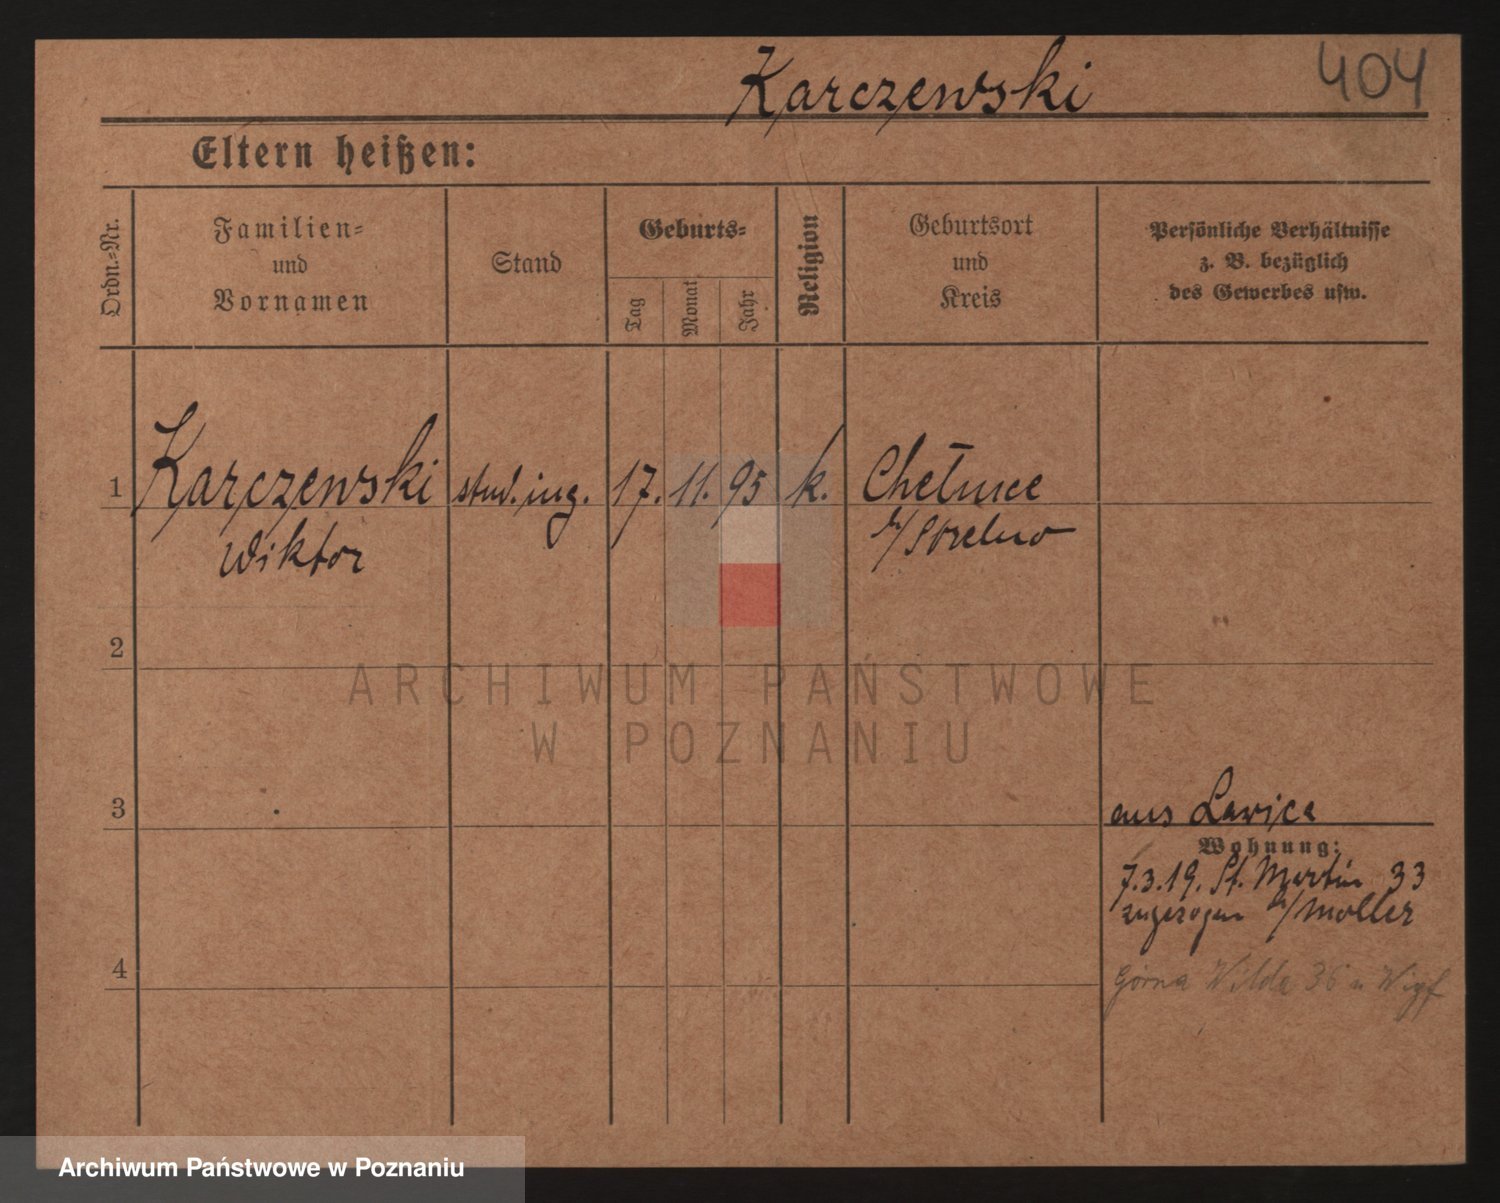 Karczewski
404
Eltern heißen:
Ordn.-Nr.
Familien-
und
Vornamen
Stand
Geburts-
Tag
Monat
Jahr
Religion
Geburtsort
und
Kreis
Persönliche Verhältnisse
z. B. bezüglich
des Gewerbes usw.
1 Karczewski stud. ing. 17. 11. 95 k. Chełmce
Wiktor b/Strelno
2
ARCHIWUM PAŃSTWOWE
W POZNANIU
3
aus Lawica
Wohnung:
7.3.19. St. Martin 33
zugezogen b/Moller
4
Górna Wilda 36 u
Archiwum Państwowe w Poznaniu